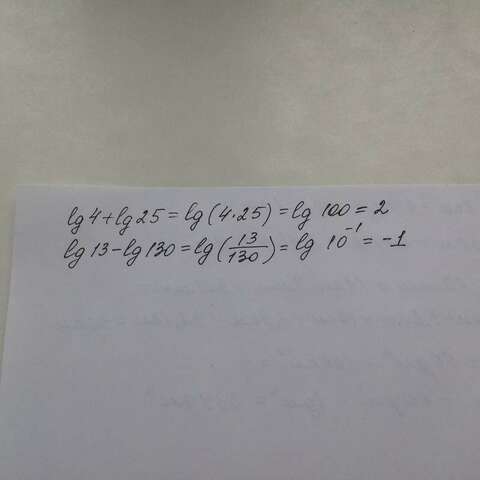 lg 4 + lg 25 = lg (4·25) = lg 100 = 2
lg 13 − lg 130 = lg (13/130) = lg 10⁻¹ = −1